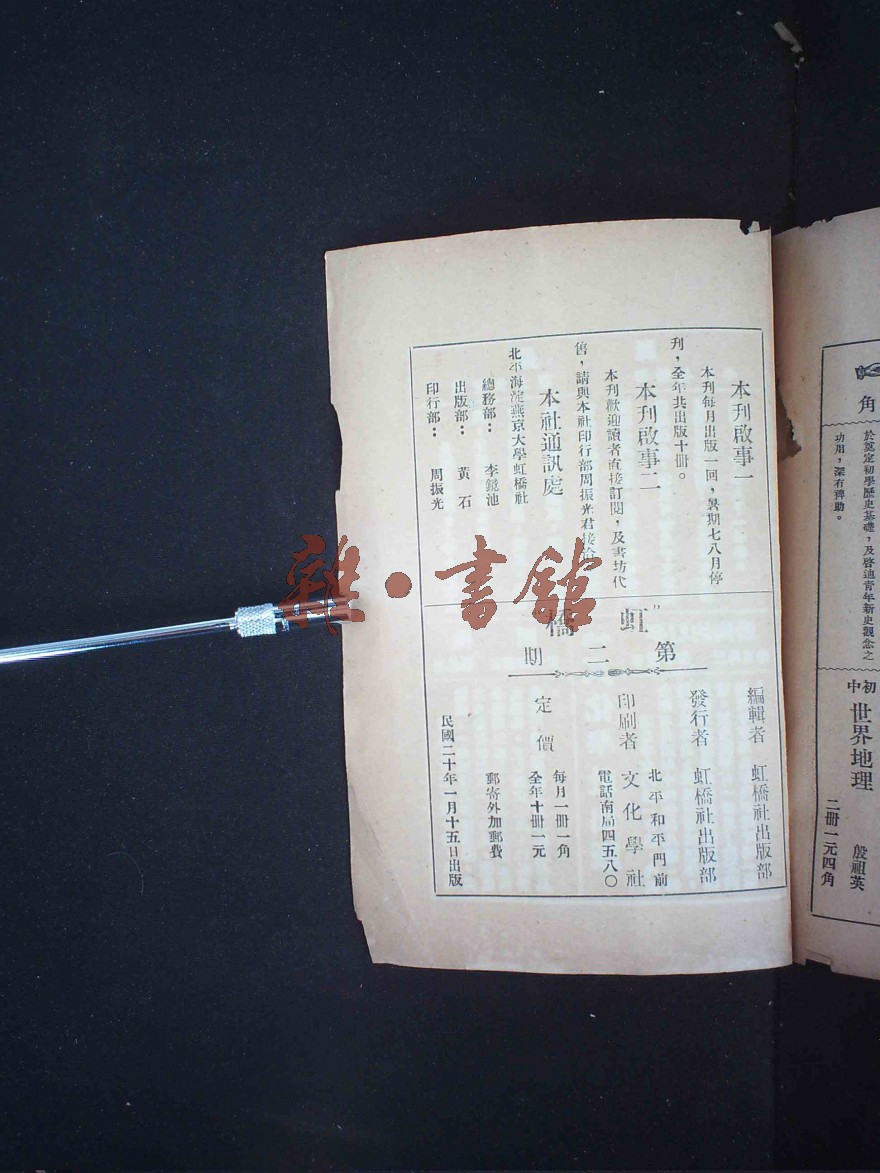 本刊啟事一
本刊每月出版一回，暑期七八月停
刊，全年共出版十冊。
本刊啟事二
本刊歡迎讀者直接訂閱，及書坊代
售，請與本社印行部周振光君接洽
本社通訊處
北平海淀燕京大學虹橋社
總務部：李鏡池
出版部：黃石
印行部：周振光
虹橋
第二期
編輯者 虹橋社出版部
發行者 虹橋社出版部
印刷者 文化學社
北平和平門前
電話南局四五八〇
定價
每月一冊一角
全年十冊一元
郵寄外加郵費
民國二十年一月十五日出版
雜·書館
角
於奠定初學歷史基礎，及啓迪青年新史觀念之
功用，深有裨助。
初中
世界地理
殷祖英
二冊一元四角